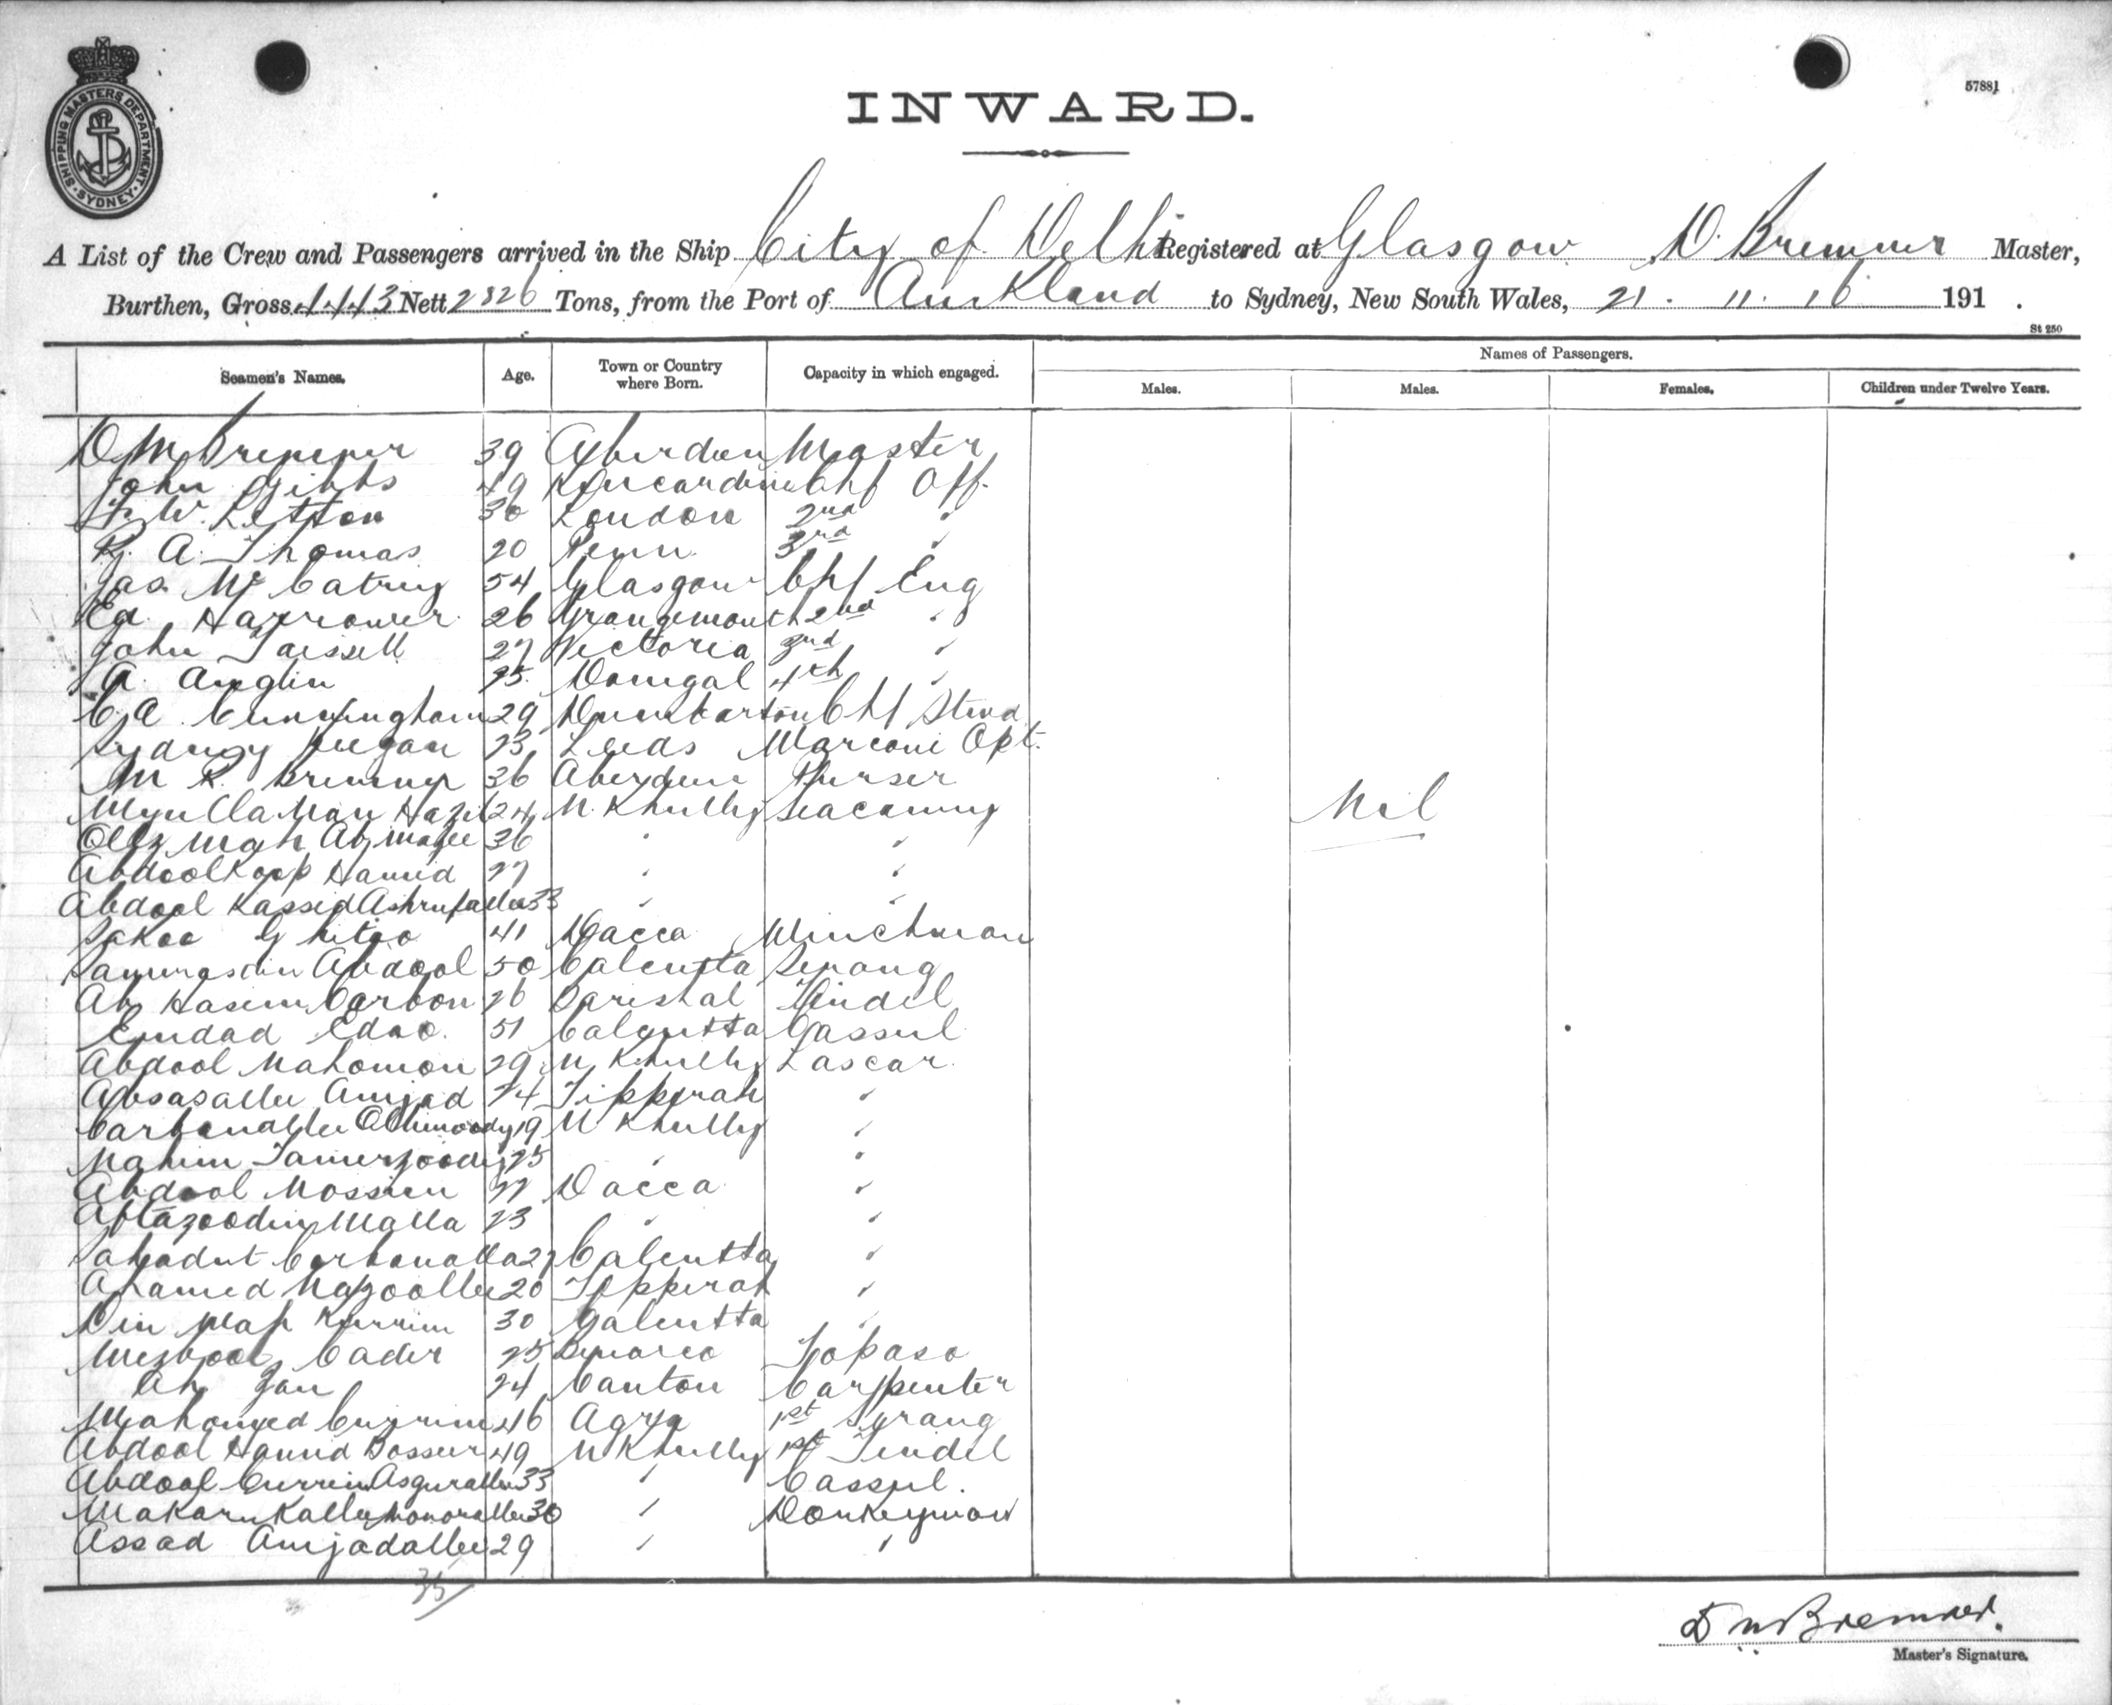 57881
SHIPPING MASTERS DEPARTMENT · SYDNEY ·
INWARD.
A List of the Crew and Passengers arrived in the Ship City of Delhi Registered at Glasgow D. Bremner Master,
Burthen, Gross 4443 Nett 2826 Tons, from the Port of Auckland to Sydney, New South Wales, 21 . 11 . 16 191 .
St 250
Seamen's Names. Age. Town or Country where Born. Capacity in which engaged. Names of Passengers.
Males. Males. Females. Children under Twelve Years.
D M Bremner 39 Aberdeen Master
John Gibbs 49 Kincardine Chf Off.
W. Letton 36 London 2nd "
R. A. Thomas 20 Penn 3rd "
Jas. Mc 54 Glasgow Chf Eng
Ed. Harrower 26 Grangemouth 2nd "
John Taissell 27 Victoria 3rd "
A. Anglin 25 Donegal 4th "
C. A. Cunningham 29 Dumbarton Chf Stwd
Sydney Keegan 23 Leeds Marconi Opt.
M R. Bremner 36 Aberdeen Purser
24 N. Khully Seacunny
36 " "
Abdool Hamid 27 " "
Abdool Kassid Ashrufallee 33 " "
41 Dacca Winchman
Abdool 50 Calcutta Serang
Ab Hasim Carbon 26 Barishal Tindel
Emdad Edoo 51 Calcutta Cassul
Abdool Mahomon 29 N Khully Lascar
Absasallee Amjad 24 Tipperah "
Carbonallee 19 N Khully "
25 " "
Abdool Mossien 27 Dacca "
Aftazoodin Malla 23 " "
Sahadut Carbonalla 27 Calcutta "
Ahamed 20 Tipperah "
Din Mah Kurrim 30 Calcutta "
Cader 25 Topaso
Ah Jan 24 Canton Carpenter
Mahomed Currim 46 Agra 1st Serang
Abdool Hamid Bosseer 49 N Khully 1st Tindel
Abdool Currim Asgurallee 33 " Cassul.
30 " Donkeyman
Assad Amjadallee 29 " "
Nil
35/
D M Bremner.
Master's Signature.